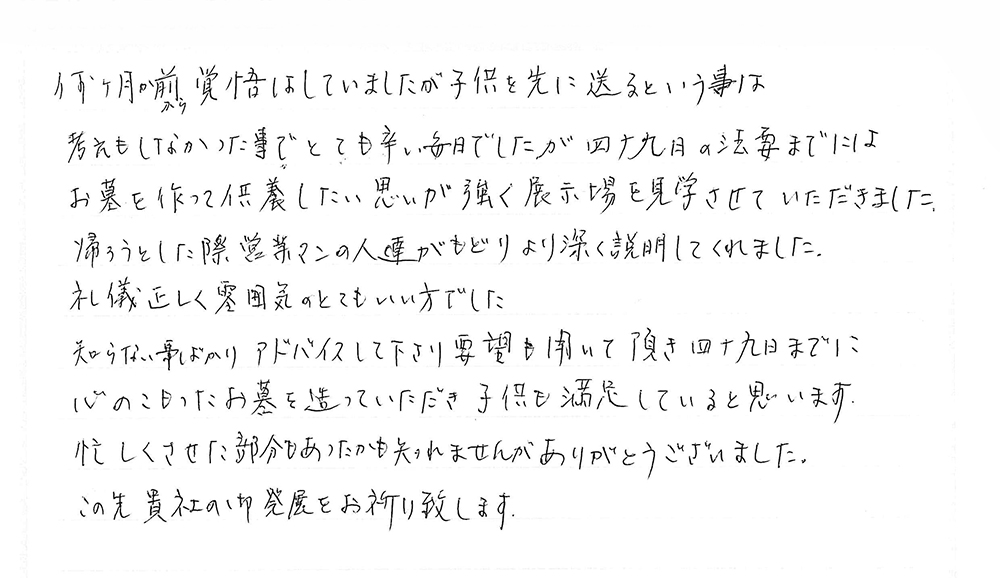 何ヶ月か前から覚悟はしていましたが子供を先に送るという事は
考えもしなかった事でとても辛い毎日でしたが四十九日の法要までには
お墓を作って供養したい思いが強く展示場を見学させていただきました。
帰ろうとした際営業マンの人達がもどりより深く説明してくれました。
礼儀正しく雰囲気のとてもいい方でした
知らない事ばかりアドバイスして下さり要望も聞いて頂き四十九日までに
心のこもったお墓を造っていただき子供も満足していると思います。
忙しくさせた部分もあったかも知れませんがありがとうございました。
この先貴社の御発展をお祈り致します。